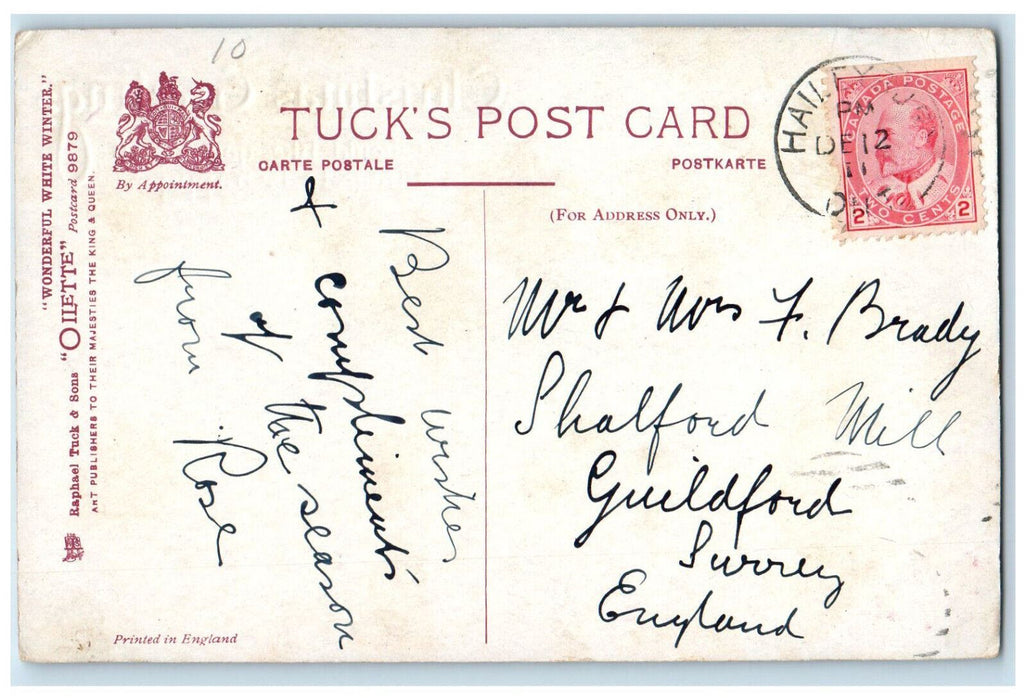 10
TUCK'S POST CARD
CARTE POSTALE
POSTKARTE
(FOR ADDRESS ONLY.)
By Appointment.
"WONDERFUL WHITE WINTER."
Raphael Tuck & Sons "OILETTE" Postcard 9879
ART PUBLISHERS TO THEIR MAJESTIES THE KING & QUEEN.
Best wishes
& compliments
of the season
from Rose
Mr & Mrs F. Brady
Shalford Mill
Guildford
Surrey
England
CANADA POSTAGE
2 TWO CENTS 2
PM
DE 12
11
ONT
Printed in England